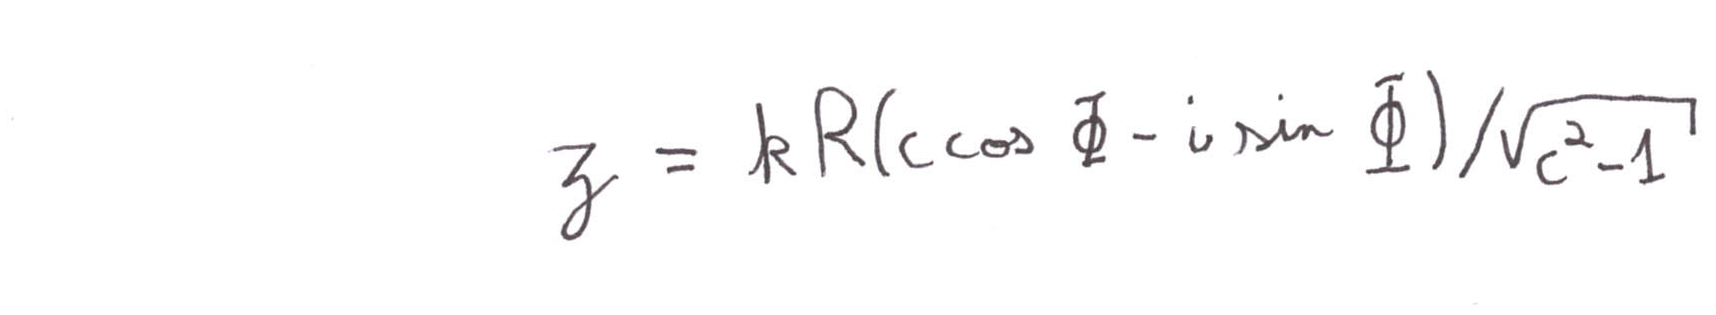 z = kR(c cos Φ - i sin Φ)/√(c²-1)